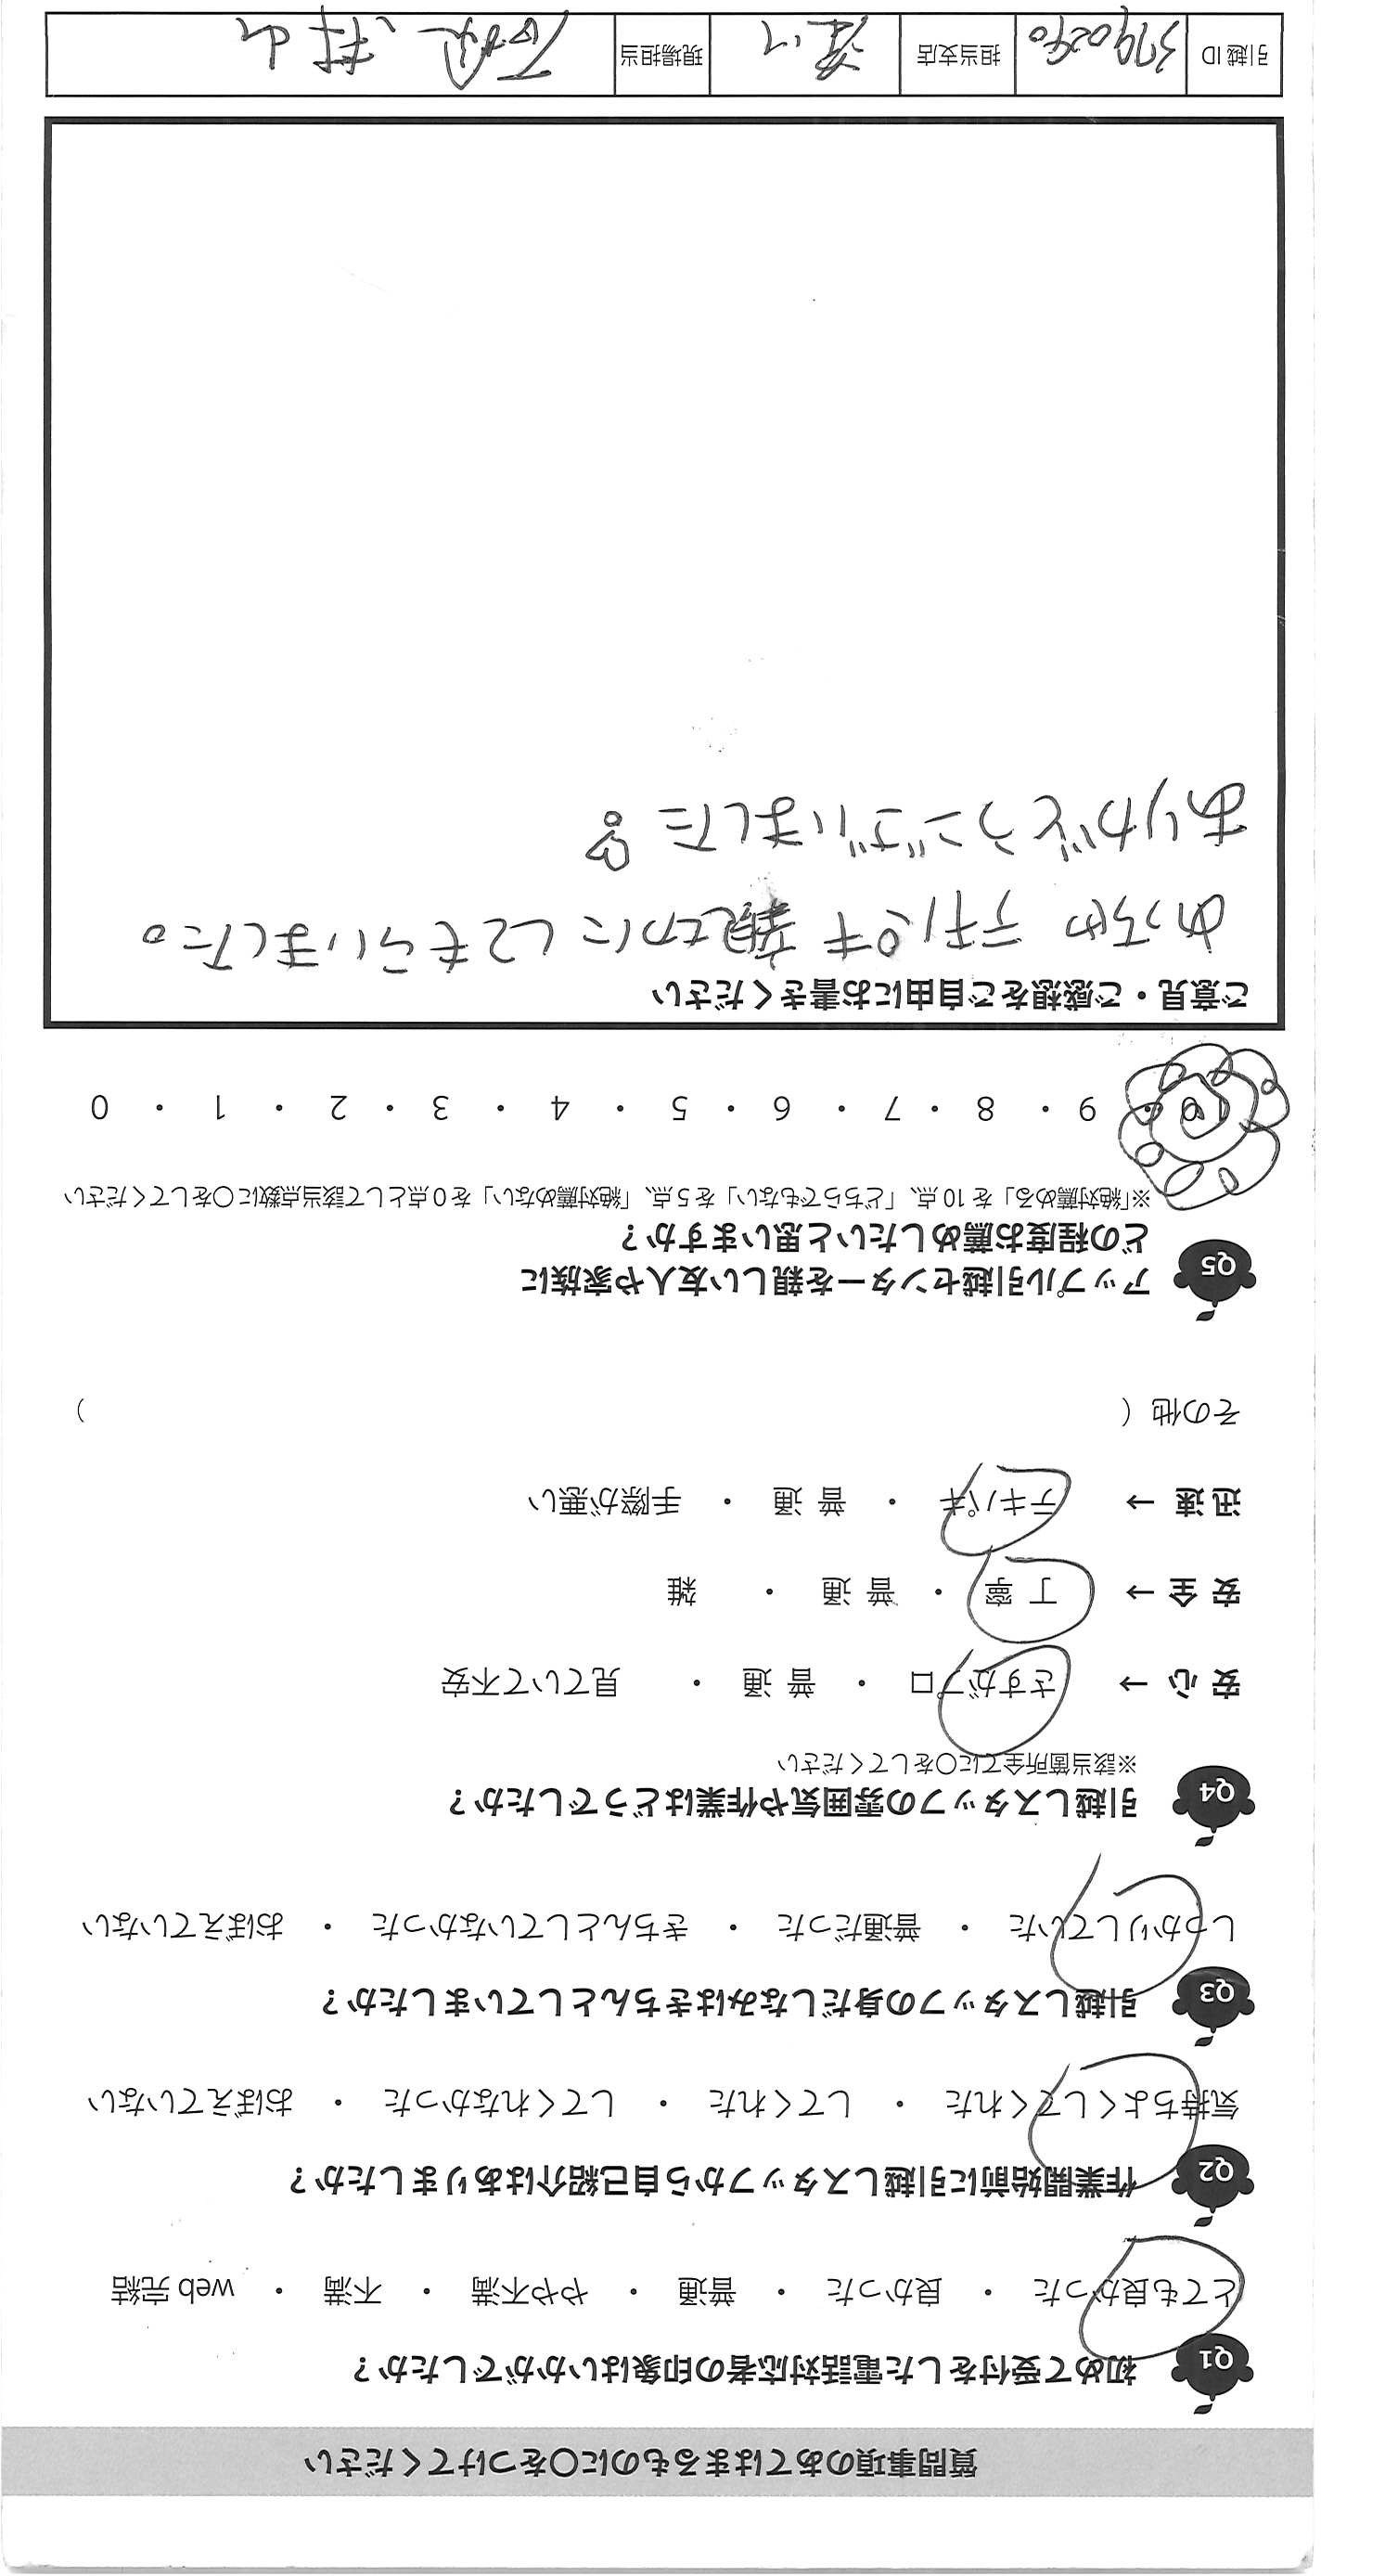 質問事項のあてはまるものに〇をつけてください
Q1 初めて受付をした電話対応者の印象はいかがでしたか？
とても良かった ・ 良かった ・ 普通 ・ やや不満 ・ 不満 ・ web 完結
Q2 作業開始前に引越しスタッフから自己紹介はありましたか？
気持ちよくしてくれた ・ してくれた ・ してくれなかった ・ おぼえていない
Q3 引越しスタッフの身だしなみはきちんとしていましたか？
しっかりしていた ・ 普通だった ・ きちんとしていなかった ・ おぼえていない
Q4 引越しスタッフの雰囲気や作業はどうでしたか？
※該当箇所全てに〇をしてください
安心 → さすがプロ ・ 普通 ・ 見ていて不安
安全 → 丁寧 ・ 普通 ・ 雑
迅速 → テキパキ ・ 普通 ・ 手際が悪い
その他（ ）
Q5 アップル引越センターを親しい友人や家族に
どの程度お薦めしたいと思いますか？
※「絶対薦める」を 10 点、「どちらでもない」を 5 点、「絶対薦めない」を 0 点として該当点数に〇をしてください
10 ・ 9 ・ 8 ・ 7 ・ 6 ・ 5 ・ 4 ・ 3 ・ 2 ・ 1 ・ 0
ご意見・ご感想をご自由にお書きください
めっちゃ テキパキ 親切にしてもらいました。
ありがとうございました
引越 ID 担当支店 現場担当